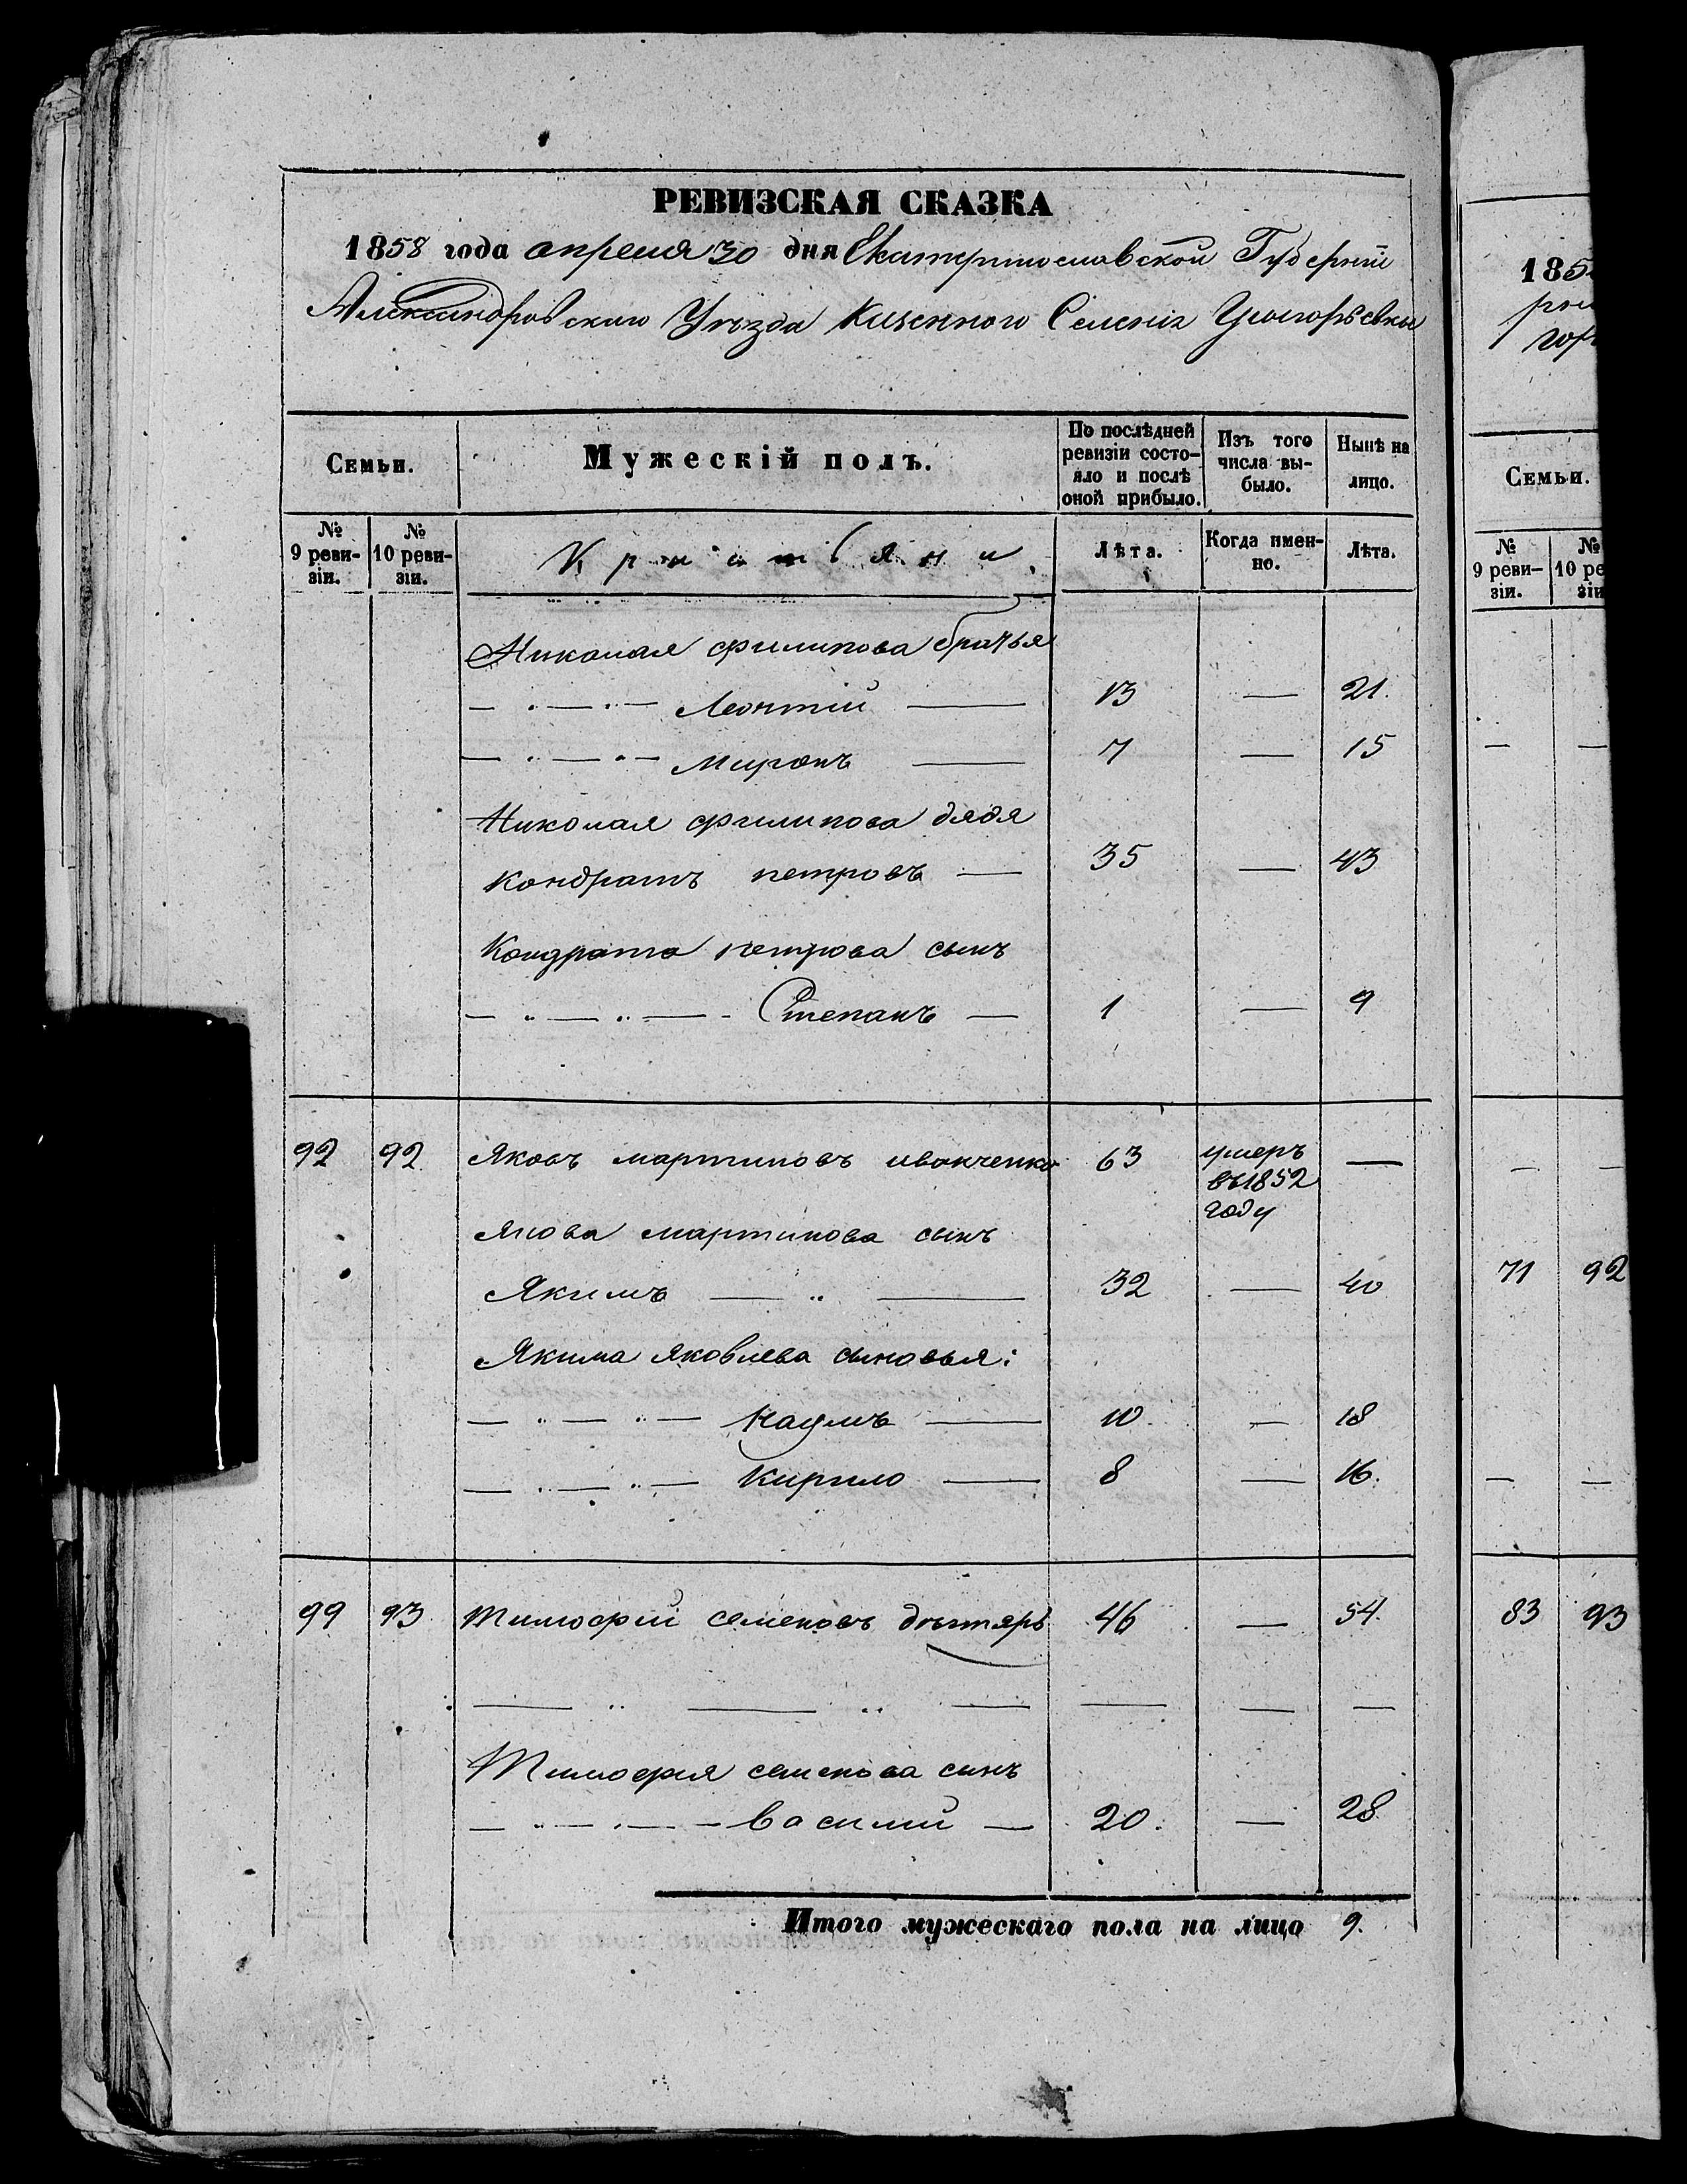 РЕВИЗСКАЯ СКАЗКА
1858 года апреля 30 дня Екатеринославской Губерніи
Александровскаго Уѣзда Казеннаго Селенія
Семьи.
Мужескій полъ.
По послѣдней ревизіи состояло и послѣ оной прибыло.
Изъ того числа выбыло.
Нынѣ на лицо.
№ 9 ревизіи.
№ 10 ревизіи.
Крестьяни.
Лѣта.
Когда именно.
Лѣта.
Николая филипова братья
Леонтій 13 — 21.
Миронъ 7 — 15
Николая филипова дядя
Кондратъ петровъ — 35 — 43
Кондрата петрова сынъ
Степанъ — 1 — 9
92 92 Яковъ мартиновъ иванченко 63 умеръ —
въ 1852
году
Якова мартинова сынъ
Якимъ 32 — 40
Якима Яковлева сыновья:
Наумъ 10. — 18
Кирило 8 — 16.
99 93 Тимофей семеновъ дѣгтярь 46 — 54.
Тимофея семенова сынъ
василий — 20. — 28
Итого мужескаго пола на лицо 9.
185
Семьи.
№ 9 ревизіи.
№ 10 ре
71 92
83 93